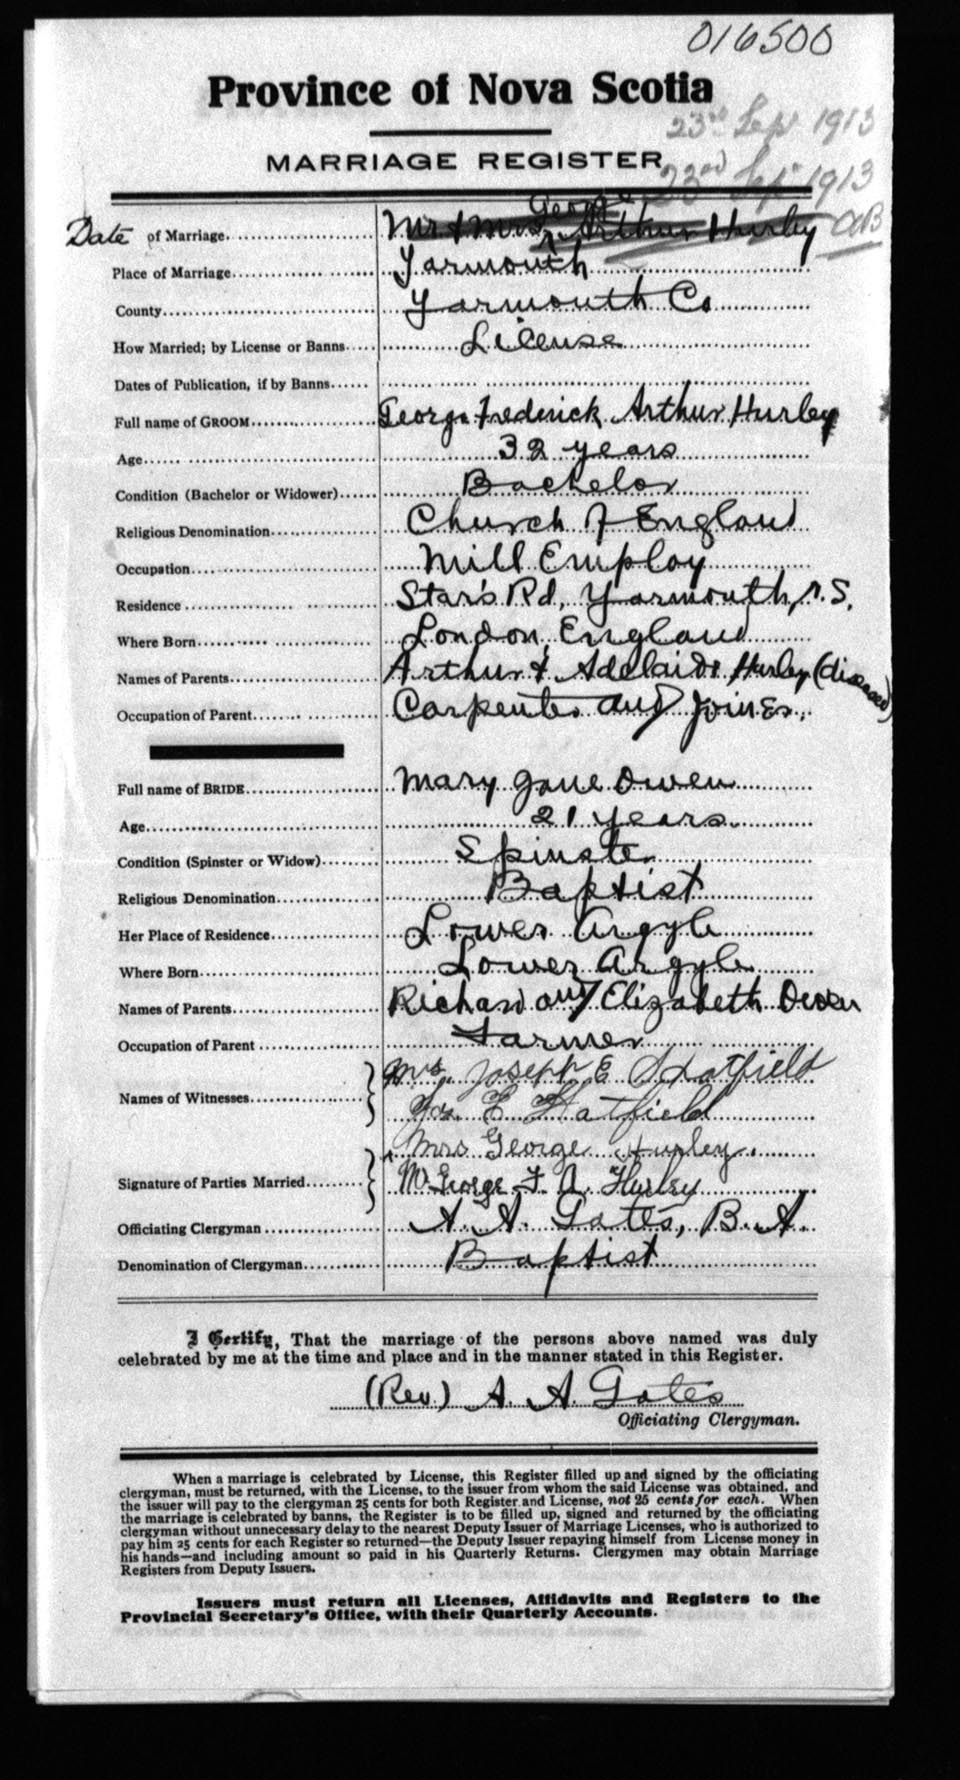 016500
Province of Nova Scotia
23rd Sep 1913
MARRIAGE REGISTER
23rd Sep 1913
George
Date of Marriage Mr & Mrs Arthur Hurley AB
Place of Marriage Yarmouth
County Yarmouth Co
How Married; by License or Banns License
Dates of Publication, if by Banns
Full name of GROOM George Frederick Arthur Hurley
Age 32 years
Condition (Bachelor or Widower) Bachelor
Religious Denomination Church of England
Occupation Mill Employ
Residence Star's Rd, Yarmouth, N.S.
Where Born London, England
Names of Parents Arthur & Adelaide Hurley (diseased)
Occupation of Parent Carpenter and Joiner.
Full name of BRIDE Mary Jane Owen
Age 21 years
Condition (Spinster or Widow) Spinster
Religious Denomination Baptist
Her Place of Residence Lower Argyle
Where Born Lower Argyle
Names of Parents Richard and Elizabeth Owen
Occupation of Parent Farmer
Names of Witnesses Mrs. Joseph E Hatfield
Jos. E Hatfield
Mrs George Hurley.
Signature of Parties Married Mr George F. A. Hurley
Officiating Clergyman A. A. Gates, B. A.
Denomination of Clergyman Baptist
I Certify, That the marriage of the persons above named was duly
celebrated by me at the time and place and in the manner stated in this Register.
(Rev.) A. A. Gates
Officiating Clergyman.
When a marriage is celebrated by License, this Register filled up and signed by the officiating
clergyman, must be returned, with the License, to the issuer from whom the said License was obtained, and
the issuer will pay to the clergyman 25 cents for both Register and License, not 25 cents for each. When
the marriage is celebrated by banns, the Register is to be filled up, signed and returned by the officiating
clergyman without unnecessary delay to the nearest Deputy Issuer of Marriage Licenses, who is authorized to
pay him 25 cents for each Register so returned—the Deputy Issuer repaying himself from License money in
his hands—and including amount so paid in his Quarterly Returns. Clergymen may obtain Marriage
Registers from Deputy Issuers.
Issuers must return all Licenses, Affidavits and Registers to the
Provincial Secretary's Office, with their Quarterly Accounts.